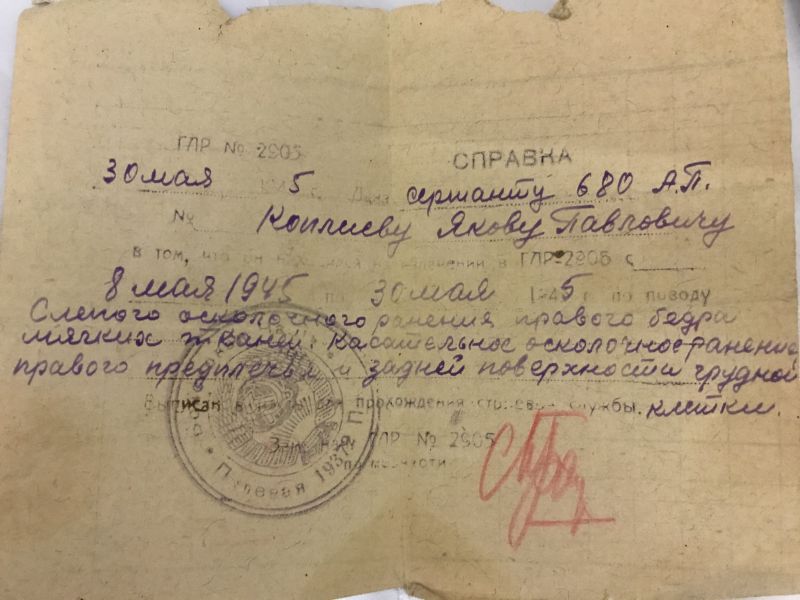 ГЛР № 2905
СПРАВКА
30 мая 5 г. Дана сержанту 680 А.П.
№ Коплиеву Якову Павловичу
в том, что он находился на излечении в ГЛР-2905 с
8 мая 1945 по 30 мая 1945 г. по поводу
Слепого осколочного ранения правого бедра
мягких тканей. Касательное осколочное ранение
правого предплечья и задней поверхности грудной
клетки.
Выписан в часть для прохождения строевой службы.
ГЛР № 2905
Полевая 19372